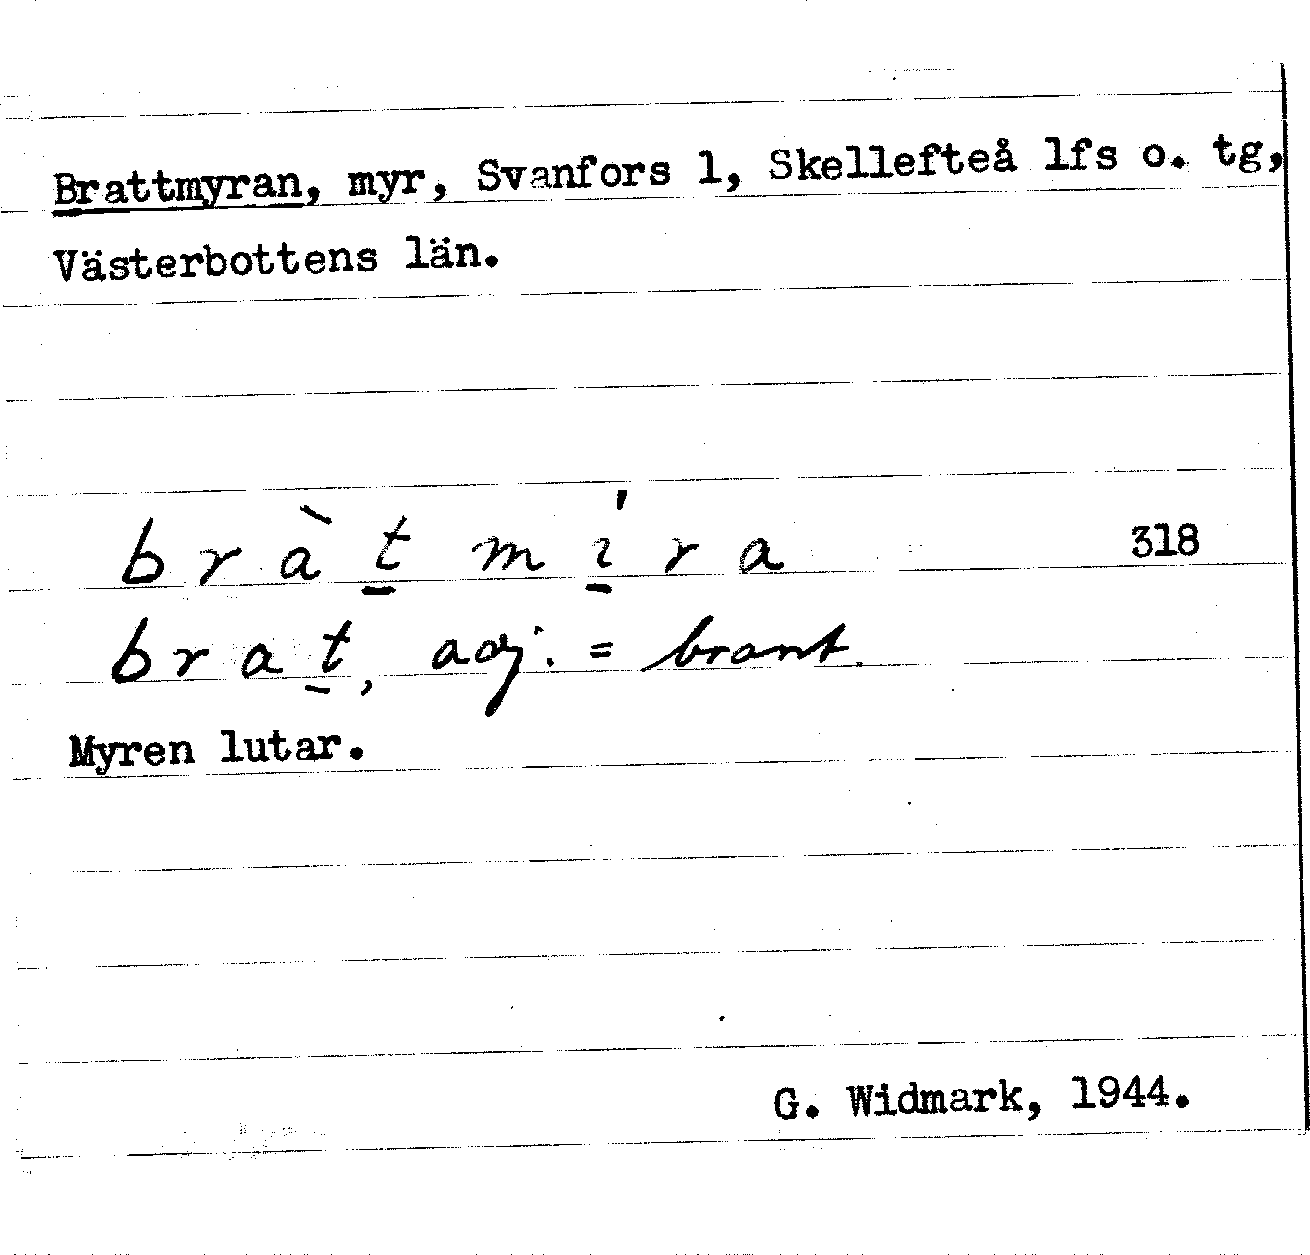 Brattmyran, myr, Svanfors 1, Skellefteå lfs o. tg,
Västerbottens län.
b r à t̲ m í̲ r a 318
b r a t̲, adj. = brant.
Myren lutar.
G. Widmark, 1944.